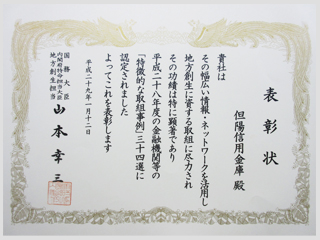 表彰状
但陽信用金庫 殿
貴社は
その幅広い情報・ネットワークを活用し
地方創生に資する取組に尽力され
その功績は特に顕著であり
平成二十八年度の金融機関等の
「特徴的な取組事例」三十四選に
認定されました
よってこれを表彰します
平成二十九年一月十二日
国務大臣
内閣府特命担当大臣
地方創生担当
山本幸三